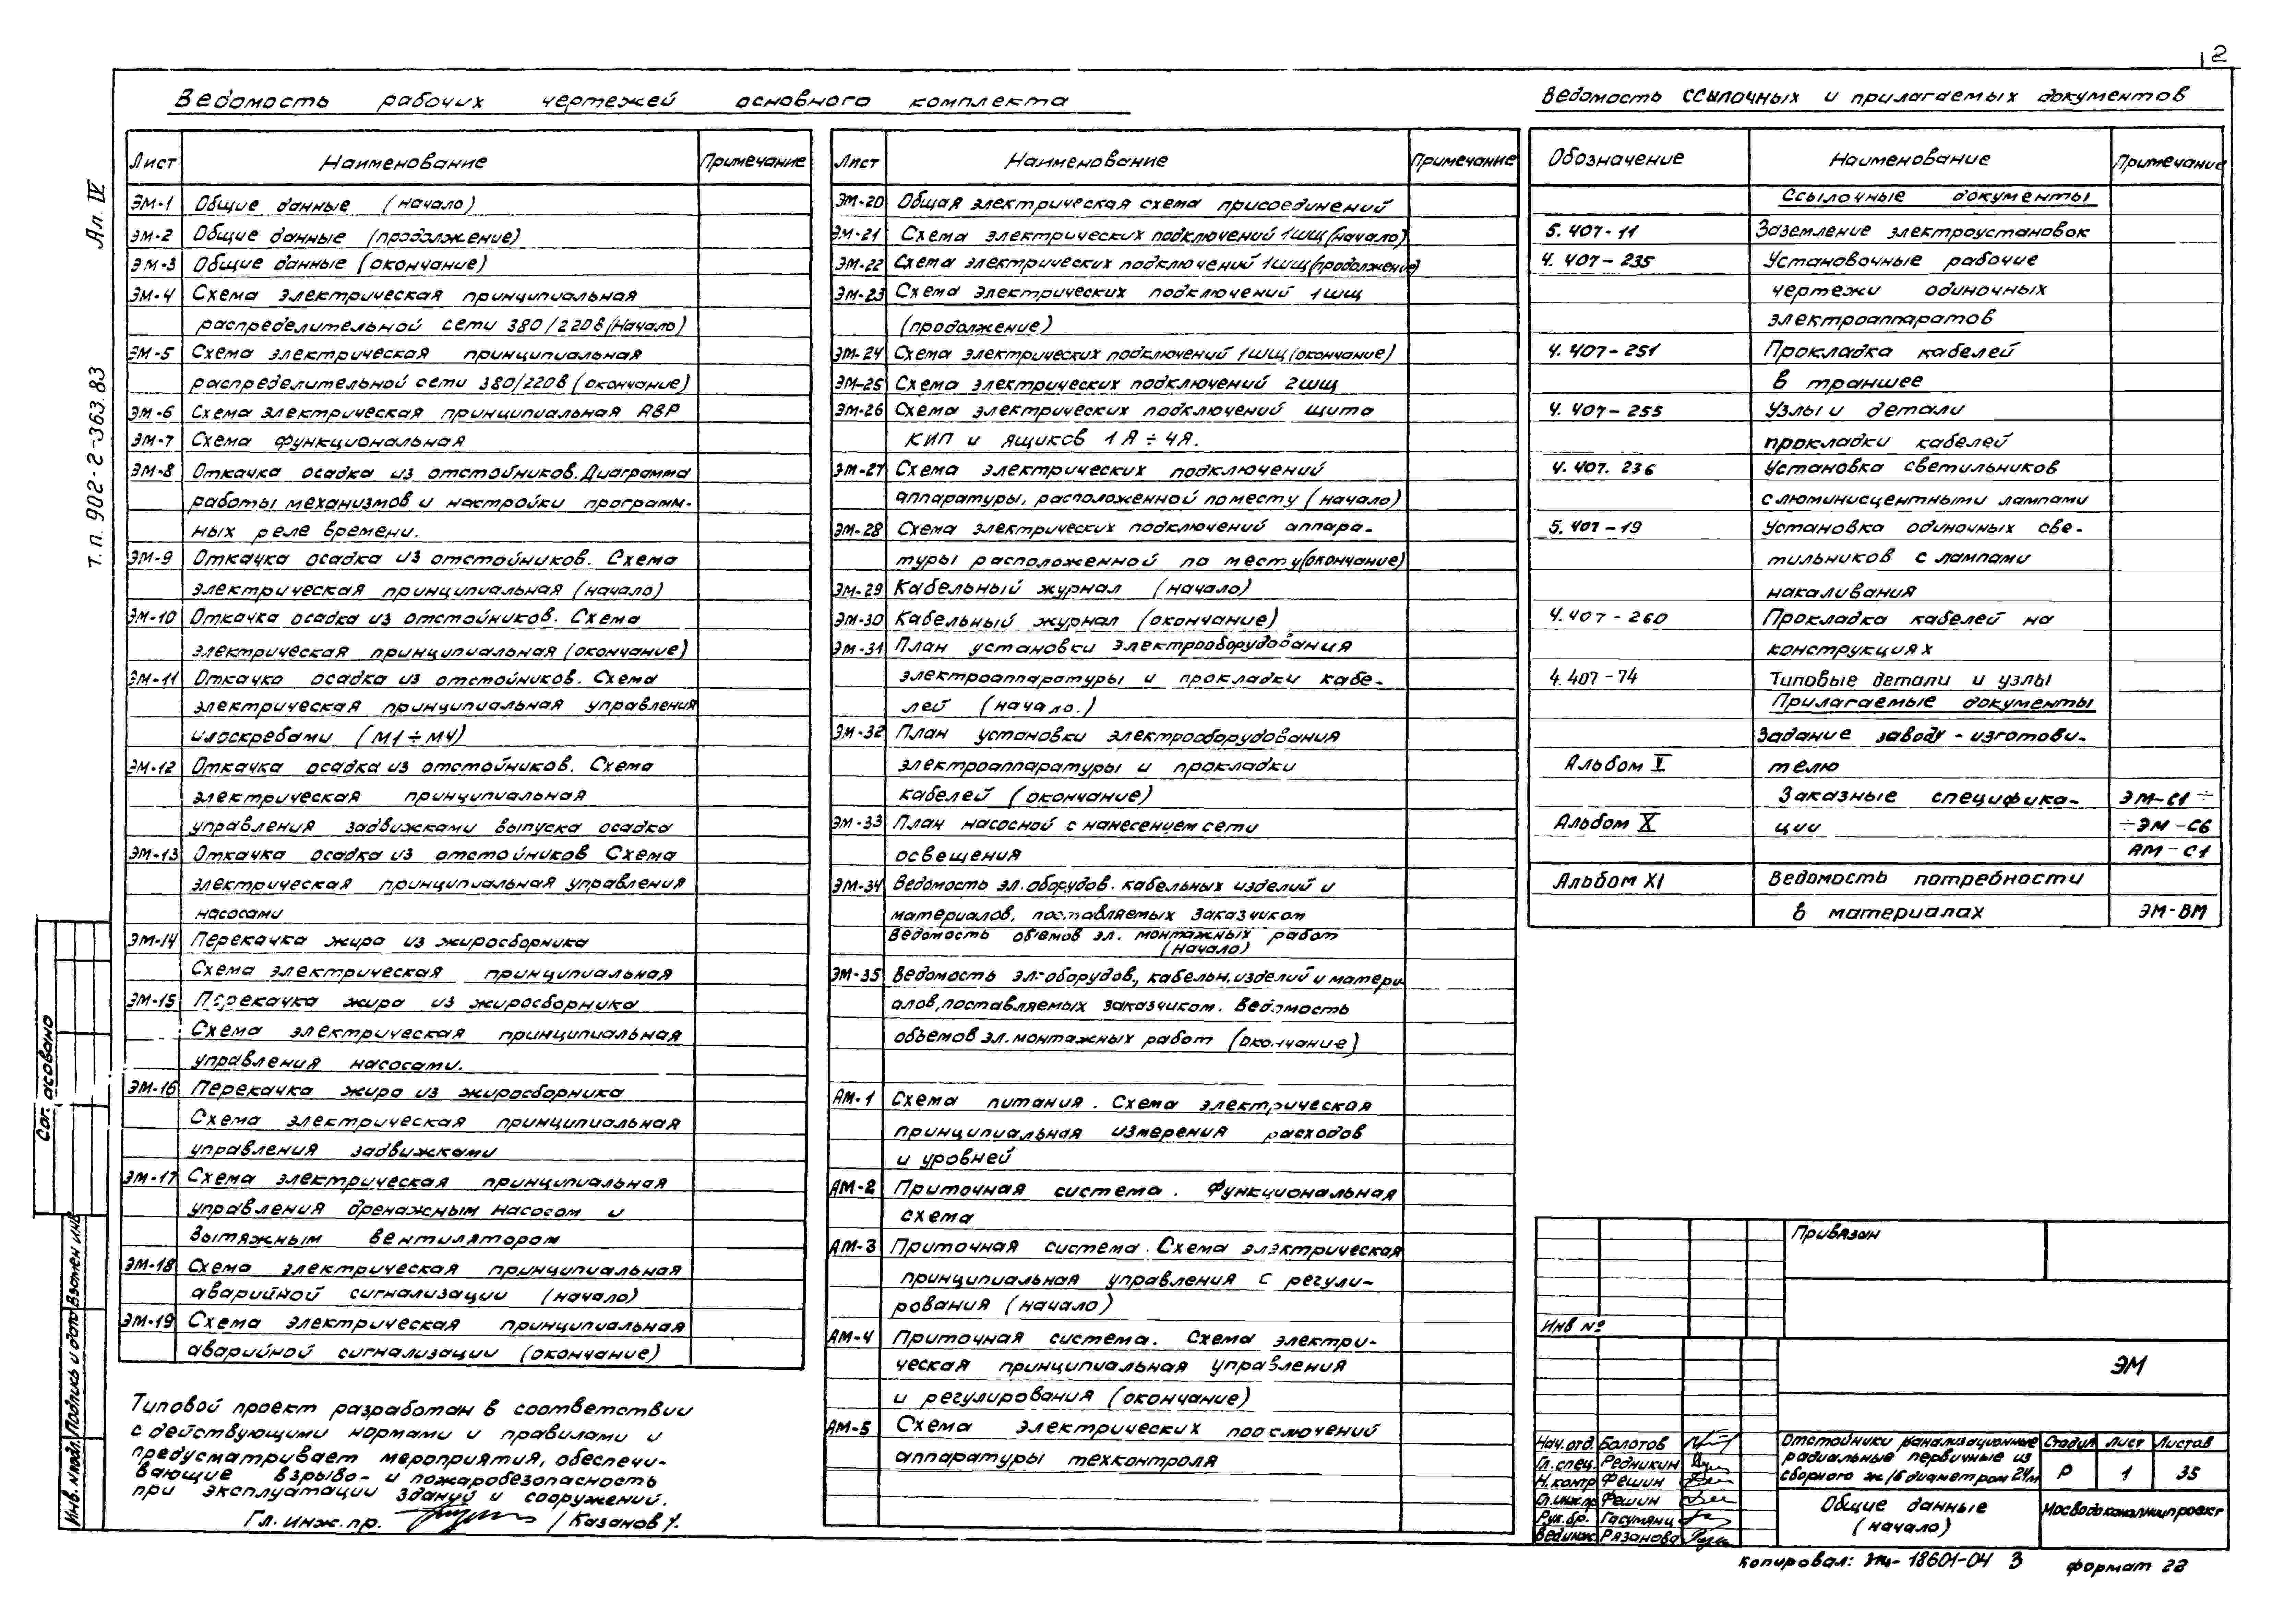 2
Ведомость рабочих чертежей основного комплекта
Лист Наименование Примечание
ЭМ-1 Общие данные (начало)
ЭМ-2 Общие данные (продолжение)
ЭМ-3 Общие данные (окончание)
ЭМ-4 Схема электрическая принципиальная
распределительной сети 380/220в (начало)
ЭМ-5 Схема электрическая принципиальная
распределительной сети 380/220в (окончание)
ЭМ-6 Схема электрическая принципиальная АВР
ЭМ-7 Схема функциональная
ЭМ-8 Откачка осадка из отстойников. Диаграмма
работы механизмов и настройки программ-
ных реле времени.
ЭМ-9 Откачка осадка из отстойников. Схема
электрическая принципиальная (начало)
ЭМ-10 Откачка осадка из отстойников. Схема
электрическая принципиальная (окончание)
ЭМ-11 Откачка осадка из отстойников. Схема
электрическая принципиальная управления
илоскребами (М1÷М4)
ЭМ-12 Откачка осадка из отстойников. Схема
электрическая принципиальная
управления задвижками выпуска осадка
ЭМ-13 Откачка осадка из отстойников Схема
электрическая принципиальная управления
насосами
ЭМ-14 Перекачка жира из жиросборника
Схема электрическая принципиальная
ЭМ-15 Перекачка жира из жиросборника
Схема электрическая принципиальная
управления насосами.
ЭМ-16 Перекачка жира из жиросборника
Схема электрическая принципиальная
управления задвижками
ЭМ-17 Схема электрическая принципиальная
управления дренажным насосом и
вытяжным вентилятором
ЭМ-18 Схема электрическая принципиальная
аварийной сигнализации (начало)
ЭМ-19 Схема электрическая принципиальная
аварийной сигнализации (окончание)
Типовой проект разработан в соответствии
с действующими нормами и правилами и
предусматривает мероприятия, обеспечи-
вающие взрыво- и пожаробезопасность
при эксплуатации зданий и сооружений.
Гл. инж. пр. /Казанов/.
Лист Наименование Примечание
ЭМ-20 Общая электрическая схема присоединений
ЭМ-21 Схема электрических подключений 1шщ (начало)
ЭМ-22 Схема электрических подключений 1шщ (продолжение)
ЭМ-23 Схема электрических подключений 1шщ
(продолжение)
ЭМ-24 Схема электрических подключений 1шщ (окончание)
ЭМ-25 Схема электрических подключений 2шщ
ЭМ-26 Схема электрических подключений щита
КИП и ящиков 1Я÷4Я.
ЭМ-27 Схема электрических подключений
аппаратуры, расположенной по месту (начало)
ЭМ-28 Схема электрических подключений аппара-
туры расположенной по месту (окончание)
ЭМ-29 Кабельный журнал (начало)
ЭМ-30 Кабельный журнал (окончание)
ЭМ-31 План установки электрооборудования
электроаппаратуры и прокладки кабе-
лей (начало.)
ЭМ-32 План установки электрооборудования
электроаппаратуры и прокладки
кабелей (окончание)
ЭМ-33 План насосной с нанесением сети
освещения
ЭМ-34 Ведомость эл. оборудов. кабельных изделий и
материалов, поставляемых заказчиком
Ведомость объемов эл. монтажных работ
(начало)
ЭМ-35 Ведомость эл. оборудов., кабельн. изделий и матери
алов, поставляемых заказчиком. Ведомость
объемов эл. монтажных работ (окончание)
АМ-1 Схема питания. Схема электрическая
принципиальная измерения расходов
и уровней
АМ-2 Приточная система. Функциональная
схема
АМ-3 Приточная система. Схема электрическая
принципиальная управления с регули-
рования (начало)
АМ-4 Приточная система. Схема электри-
ческая принципиальная управления
и регулирования (окончание)
АМ-5 Схема электрических подключений
аппаратуры техконтроля
Ведомость ссылочных и прилагаемых документов
Обозначение Наименование Примечание
Ссылочные документы
5.407-11 Заземление электроустановок
4.407-235 Установочные рабочие
чертежи одиночных
электроаппаратов
4.407-251 Прокладка кабелей
в траншее
4.407-255 Узлы и детали
прокладки кабелей
4.407.236 Установка светильников
с люминисцентными лампами
5.407-19 Установка одиночных све-
тильников с лампами
накаливания
4.407-260 Прокладка кабелей на
конструкциях
4.407-74 Типовые детали и узлы
Прилагаемые документы
Задание заводу-изготови-
Альбом V телю
Заказные специфика- ЭМ-С1÷
Альбом X ции ÷ЭМ-С6
АМ-С1
Альбом XI Ведомость потребности
в материалах ЭМ-ВМ
Привязан
Инв №
ЭМ
Нач.отд. Болотов
Гл. спец. Редникин
Н.контр Фешин
Гл.инж.пр Фешин
Рук. бр. Гасумянц
Вед.инж. Рязанова
Отстойники канализационные
радиальные первичные из
сборного ж/б диаметром 24м
Стадия Лист Листов
Р 1 35
Общие данные
(начало)
Мосводоканалниипроект
Копировал: 18601-04 3 формат 22
т.п. 902-2-363.83 Ал. IV
Согласовано
Инв. № подл. Подпись и дата Взамен инв